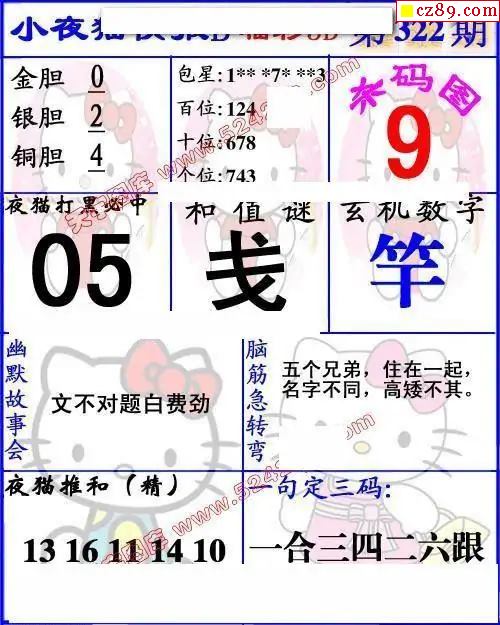 cz89.com
第322期
金胆 0
银胆 2
铜胆 4
包星:1** *7* **3
百位:124
十位:678
个位:743
杀码图
9
夜猫打黑必中
05
和值谜
戋
玄机数字
竿
幽默故事会
文不对题白费劲
脑筋急转弯
五个兄弟，住在一起，
名字不同，高矮不其。
夜猫推和（精）
13 16 11 14 10
一句定三码:
一合三四二六跟